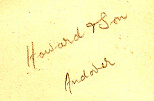 Howard & Son
Andover